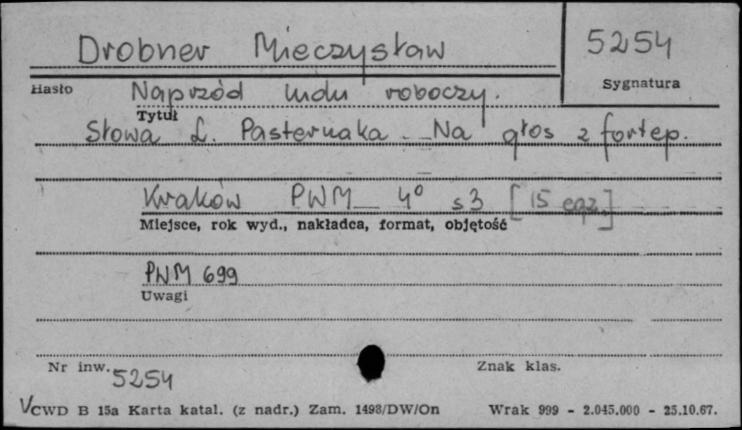 Drobner Mieczysław
5254
Hasło
Sygnatura
Naprzód ludu roboczy.
Tytuł
Słowa L. Pasternaka. Na głos z fortep.
Kraków PWM 4° s3 [15 egz.]
Miejsce, rok wyd., nakładca, format, objętość
PWM 699
Uwagi
Nr inw. 5254
Znak klas.
VCWD B 15a Karta katal. (z nadr.) Zam. 1498/DW/On Wrak 999 - 2.045.000 - 25.10.67.